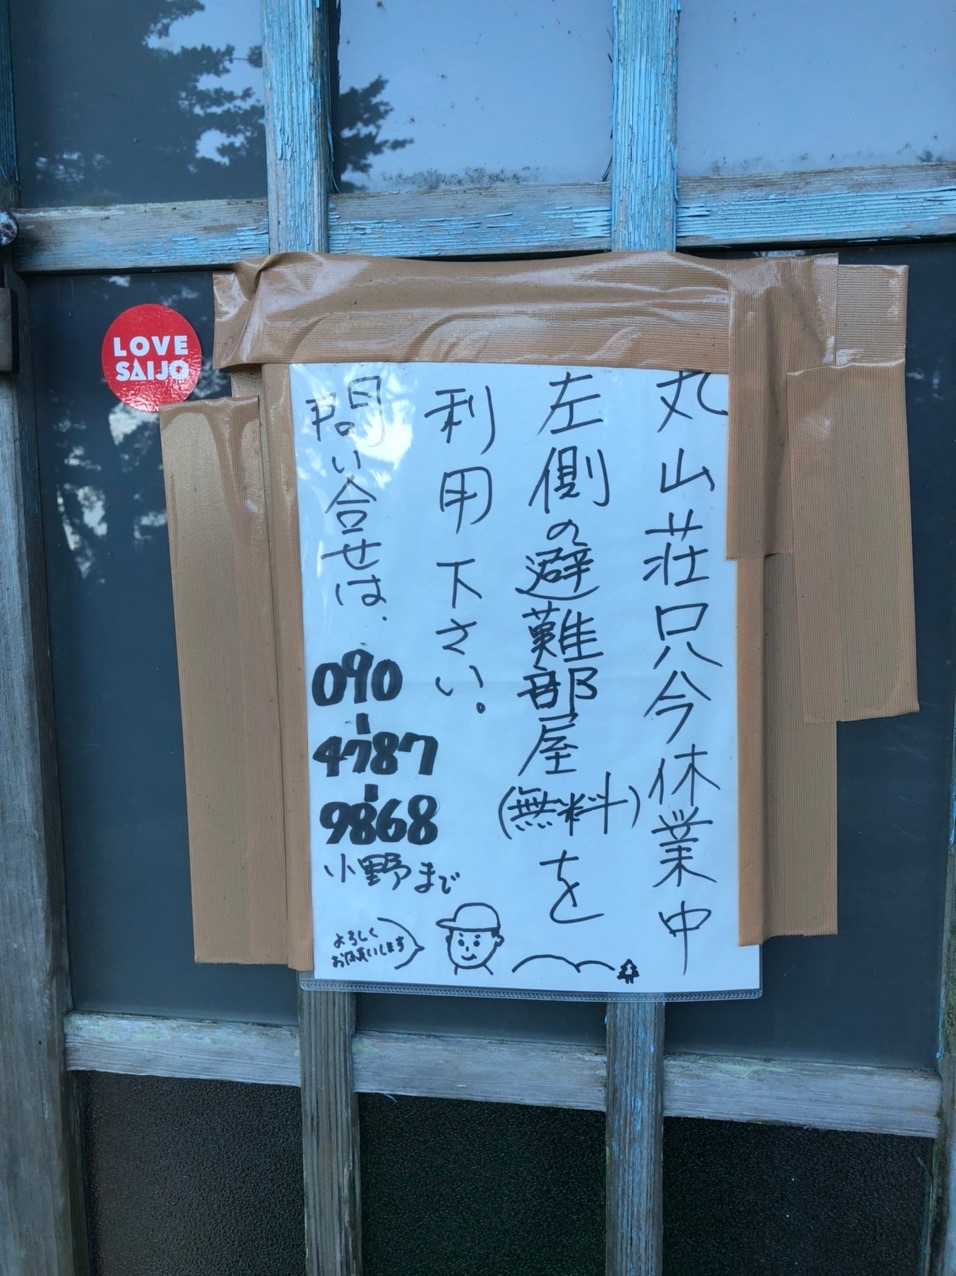 丸山荘只今休業中
左側の避難部屋(無料)を
利用下さい。
問い合せは、
090
-
4787
-
9868
小野まで
よろしく
お願いします
LOVE
SAIJO